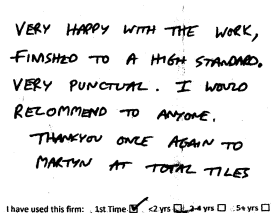 VERY HAPPY WITH THE WORK,
FINISHED TO A HIGH STANDARD.
VERY PUNCTUAL. I WOULD
RECOMMEND TO ANYONE.
THANKYOU ONCE AGAIN TO
MARTYN AT TOTAL TILES
I have used this firm: 1st Time ☑ <2 yrs ☐ 2-4 yrs ☐ 5+ yrs ☐